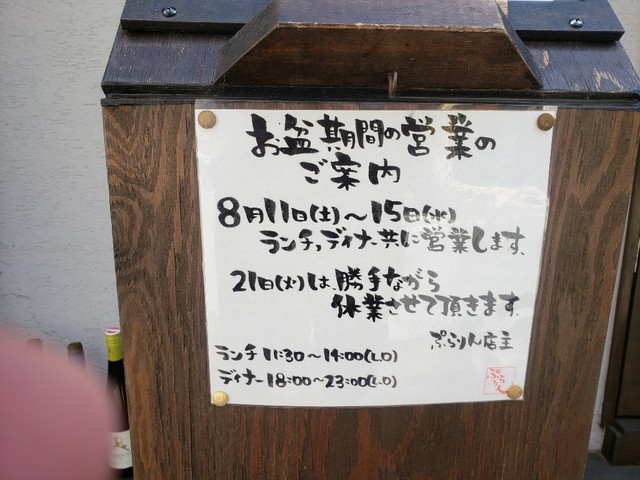 お盆期間の営業の
ご案内
8月11日(土)〜15日(水)
ランチ、ディナー共に営業します。
21日(火)は、勝手ながら
休業させて頂きます。
ぷらりん店主
ランチ 11:30〜14:00(L.O)
ディナー 18:00〜23:00(L.O)